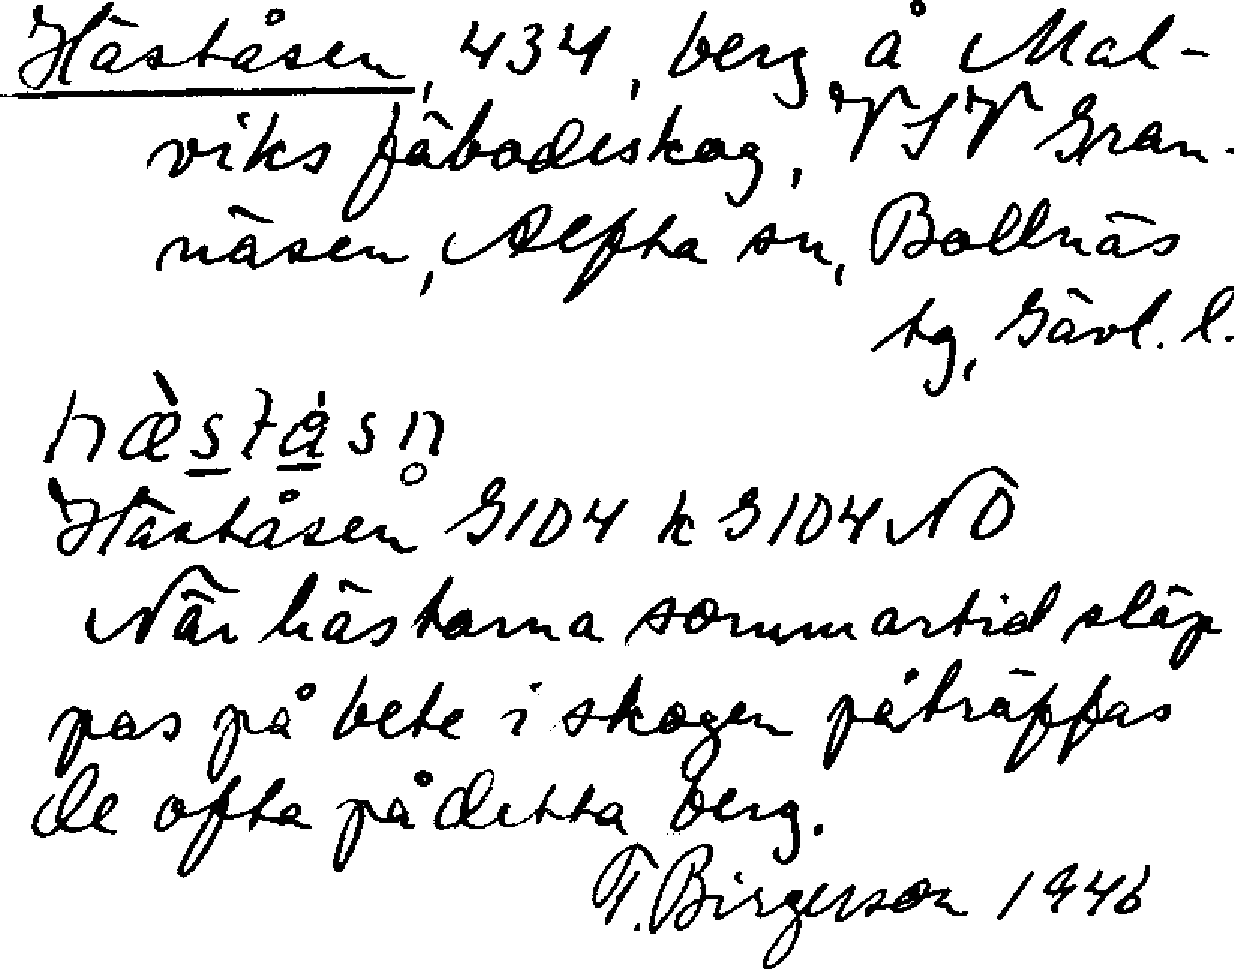 Häståsen, 434, berg å Mal-
viks fäbodeskog, VSV Gran-
näsen, Alfta sn, Bollnäs
tg, Gävl. l.
hæ̀s̲tå̲sn̥
Häståsen G104 k G104 NO
När hästarna sommartid släp
pas på bete i skogen påträffas
de ofta på detta berg.
F. Birgerson 1946